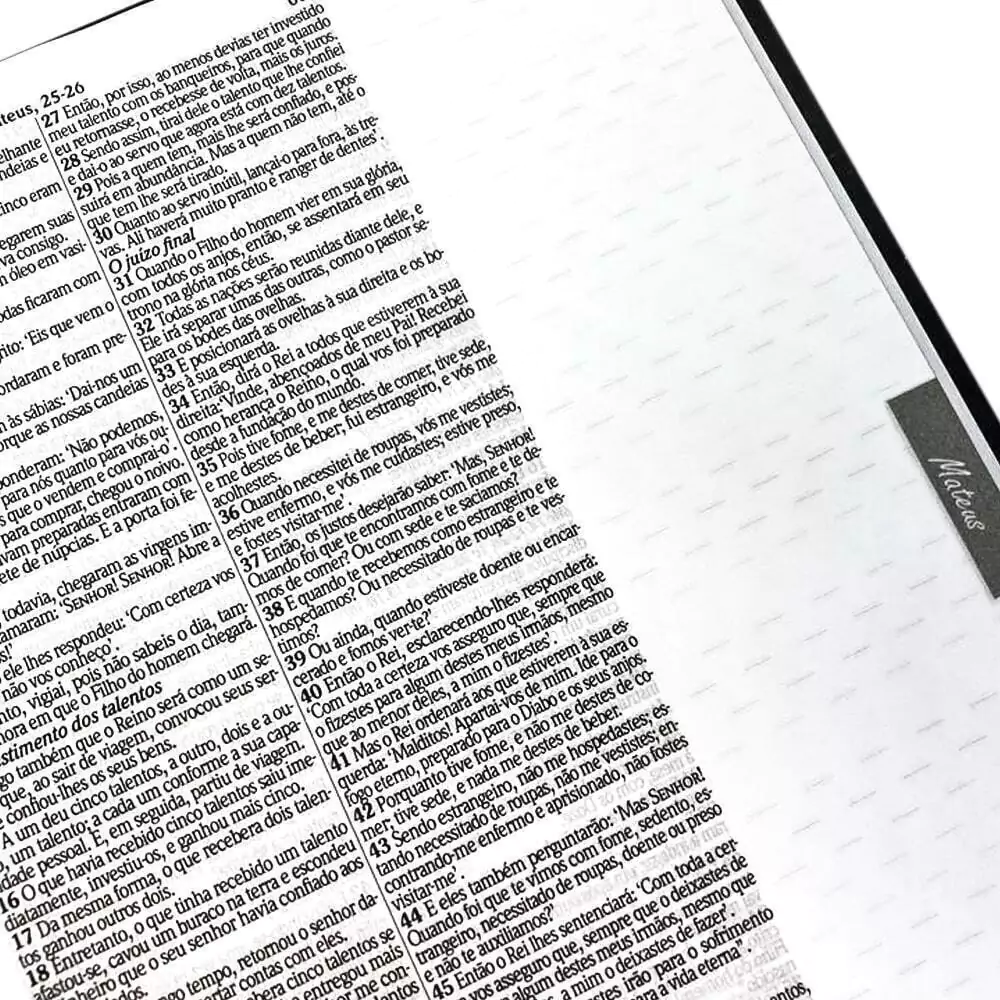 Mateus, 25-26
elhante
ndeias e
inco eram
egarem suas
va consigo.
n óleo em vasi-
odas ficaram com
rito: 'Eis que vem o
ordaram e foram pre-
n às sábias: 'Dai-nos um
orque as nossas candeias
ponderam: 'Não podemos,
para nós quanto para vós ou-
s que o vendem e comprai-o'.
para comprar, chegou o noivo.
vam preparadas entraram com
ete de núpcias. E a porta foi fe-
todavia, chegaram as virgens im-
amaram: 'SENHOR! SENHOR! Abre a
s!'
ele lhes respondeu: 'Com certeza vos
não vos conheço'.
nto, vigiai, pois não sabeis o dia, tam-
hora em que o Filho do homem chegará.
stimento dos talentos
go também que o Reino será como um se-
que, ao sair de viagem, convocou seus ser-
e confiou-lhes os seus bens.
A um deu cinco talentos, a outro, dois e a ou-
o, um talento; a cada um conforme a sua capa-
idade pessoal. E, em seguida, partiu de viagem.
16 O que havia recebido cinco talentos saiu ime-
diatamente, investiu-os, e ganhou mais cinco.
17 Da mesma forma, o que recebera dois talen-
tos ganhou outros dois.
18 Entretanto, o que tinha recebido um talento
afastou-se, cavou um buraco na terra e escondeu
nheiro que o seu senhor havia confiado aos
dados.
ngo tempo, retornou o senhor da-
ertar contas com eles.
bera cinco talentos se
e entregou mais
or me con-
talentos
27 Então, por isso, ao menos devias ter investido
meu talento com os banqueiros, para que quando
eu retornasse, o recebesse de volta, mais os juros.
28 Sendo assim, tirai dele o talento que lhe confiei
e dai-o ao servo que agora está com dez talentos.
29 Pois a quem tem, mais lhe será confiado, e pos-
suirá em abundância. Mas a quem não tem, até o
que tem lhe será tirado.
30 Quanto ao servo inútil, lançai-o para fora, às tre-
vas. Ali haverá muito pranto e ranger de dentes'.
O juízo final
31 Quando o Filho do homem vier em sua glória,
com todos os anjos, então, se assentará em seu
trono na glória nos céus.
32 Todas as nações serão reunidas diante dele, e
Ele irá separar umas das outras, como o pastor se-
para os bodes das ovelhas.
33 E posicionará as ovelhas à sua direita e os bo-
des à sua esquerda.
34 Então, dirá o Rei a todos que estiverem à sua
direita: 'Vinde, abençoados de meu Pai! Recebei
como herança o Reino, o qual vos foi preparado
desde a fundação do mundo.
35 Pois tive fome, e me destes de comer, tive sede,
e me destes de beber; fui estrangeiro, e vós me
acolhestes.
36 Quando necessitei de roupas, vós me vestistes;
estive enfermo, e vós me cuidastes; estive preso,
e fostes visitar-me'.
37 Então, os justos desejarão saber: 'Mas, SENHOR!
Quando foi que te encontramos com fome e te de-
mos de comer? Ou com sede e te saciamos?
38 E quando te recebemos como estrangeiro e te
hospedamos? Ou necessitado de roupas e te ves-
timos?
39 Ou ainda, quando estiveste doente ou encar-
cerado e fomos ver-te?'
40 Então o Rei, esclarecendo-lhes responderá:
'Com toda a certeza vos asseguro que, sempre que
o fizestes para algum destes meus irmãos, mesmo
que ao menor deles, a mim o fizestes'.
41 Mas o Rei ordenará aos que estiverem à sua es-
querda: 'Malditos! Apartai-vos de mim. Ide para o
fogo eterno, preparado para o Diabo e os seus anjos.
42 Porquanto tive fome, e não me destes de co-
mer; tive sede, e nada me destes de beber.
43 Sendo estrangeiro, não me hospedastes; es-
tando necessitado de roupas, não me vestistes; en-
contrando-me enfermo e aprisionado, não fostes
visitar-me'.
44 E eles também perguntarão: 'Mas SENHOR!
Quando foi que te vimos com fome, sedento, es-
trangeiro, necessitado de roupas, doente ou preso
e não te auxiliamos?'
45 Então o Rei lhes sentenciará: 'Com toda a cer-
vos asseguro que, sempre que o deixastes de
algum destes meus irmãos, mesmo que
a mim o deixastes de fazer'.
estes irão para o sofrimento
para a vida eterna".
Mateus